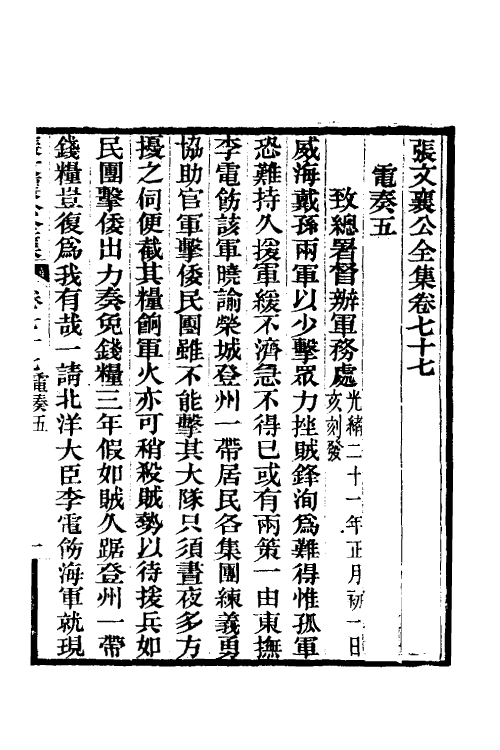 張文襄公全集卷七十七
電奏五
致總署督辦軍務處光緒二十一年正月初一日
亥刻發
威海戴孫兩軍以少擊眾力挫賊鋒洵爲難得惟孤軍
恐難持久援軍緩不濟急不得已或有兩策一由東撫
李電飭該軍曉諭榮城登州一帶居民各集團練義勇
協助官軍擊倭民團雖不能擊其大隊只須晝夜多方
擾之伺便截其糧餉軍火亦可稍殺賊勢以待援兵如
民團擊倭出力奏免錢糧三年假如賊久踞登州一帶
錢糧豈復爲我有哉一請北洋大臣李電飭海軍就現
電奏五
一